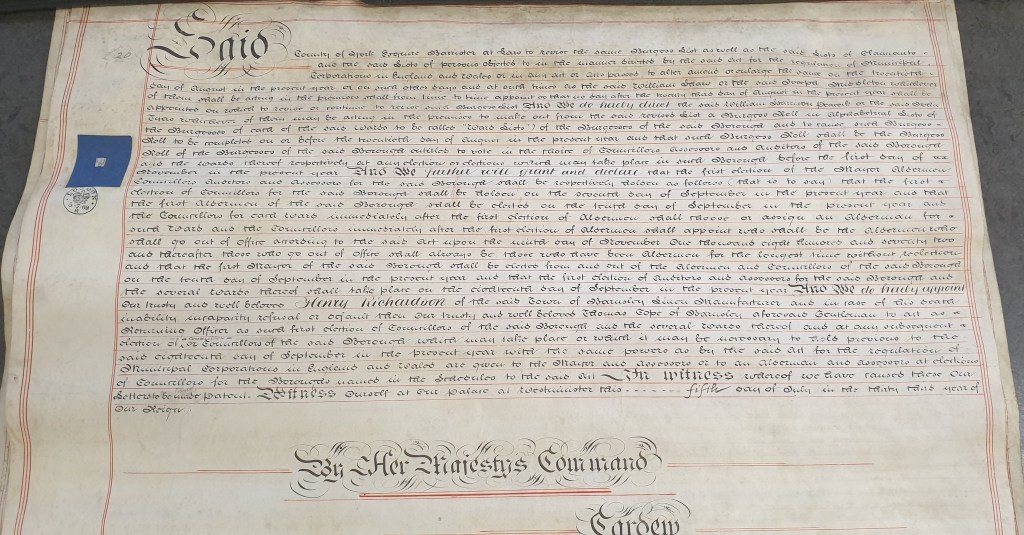 Said County of York Esquire Barrister at Law to revise the same Burgess List as well as the said Lists of Claimants
and the said Lists of persons objected to in the manner directed by the said Act for the regulation of Municipal
Corporations in England and Wales or in any act or Acts passed to alter amend or enlarge the same on the twentieth
day of August in the present year or on such other days and at such times as the said William or the said Joseph Middleton whichever
of them shall be acting in the premises shall from time to time appoint so that no day after the twenty third day of August in the present year shall be
appointed on which to revise or continue to revise such Burgess List And We do hereby direct the said William or the said John
Tyas whichever of them may be acting in the premises to make out from the said revised List a Burgess Roll in Alphabetical Lists of
the Burgesses of each of the said Wards to be called "Ward Lists") of the Burgesses of the said Borough and to cause such Burgess
Roll to be completed on or before the day of August in the present year and that such Burgess Roll shall be the Burgess
Roll of the Burgesses of the said Borough entitled to vote in the choice of Councillors Assessors and Auditors of the said Borough
and the wards thereof respectively at any election or elections which may take place in such Borough before the first day of
November in the present year And We further will grant and declare that the first election of the Mayor Aldermen
Councillors Auditors and Assessors for the said Borough shall be respectively holden as follows that is to say that the first
election of Councillors for the said Borough shall be holden on the second day of September in the present year and that
the first Aldermen of the said Borough shall be elected on the tenth day of September in the present year and
the Councillors for each ward immediately after the first election of Aldermen shall choose or assign an Alderman for
such Ward and the Councillors immediately after the first election of Aldermen shall appoint who shall be the Aldermen who
shall go out of Office according to the said Act upon the ninth day of November One thousand eight hundred and seventy two
and thereafter those who go out of Office shall always be those who have been Aldermen for the longest time without reelection
and that the first Mayor of the said Borough shall be elected from and out of the Aldermen and Councillors of the said Borough
on the tenth day of September in the present year and that the first election of Auditors and Assessors for the said Borough and
the several wards thereof shall take place on the eighteenth day of September in the present year And We do hereby appoint
Our trusty and well beloved Henry Richardson of the said Town of Barnsley Linen Manufacturer and in case of his death
inability incapacity refusal or default then Our trusty and well beloved Thomas Cope of Barnsley aforesaid Gentleman to act as
Returning Officer at such first election of Councillors of the said Borough and the several wards thereof and at any subsequent
election of Councillors of the said Borough which may take place or which it may be necessary to hold previous to the
said eighteenth day of September in the present year with the same powers as by the said Act for the regulation of
Municipal Corporations in England and Wales are given to the Mayor and Assessors or to an Alderman and Assessors at elections
of Councillors for the Boroughs named in the Schedules to the said Act In Witness whereof we have caused these Our
Letters to be made Patent. Witness Ourself at Our Palace at Westminster this fifth day of July in the thirty third year of
Our Reign
By Her Majestys Command
Cardew